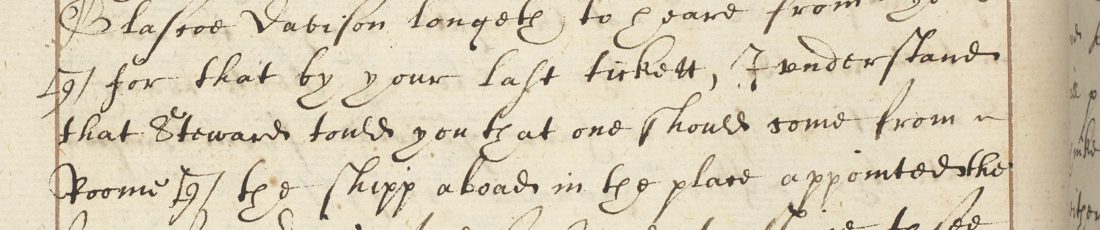 Glascoe Davison longeth to heare from
[9] for that by your last tickett, I understand
that Steward tould you that one should come from
Roome [9] the shipp aboad in the place appointed the
to see